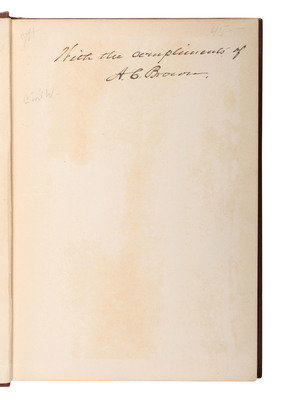 With the compliments of
A. C. Brown.